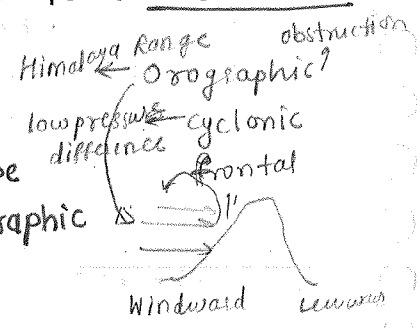 obstruction
Himalaya Range
Orographic
low pressure
cyclonic
difference
frontal
pe
raphic
Windward